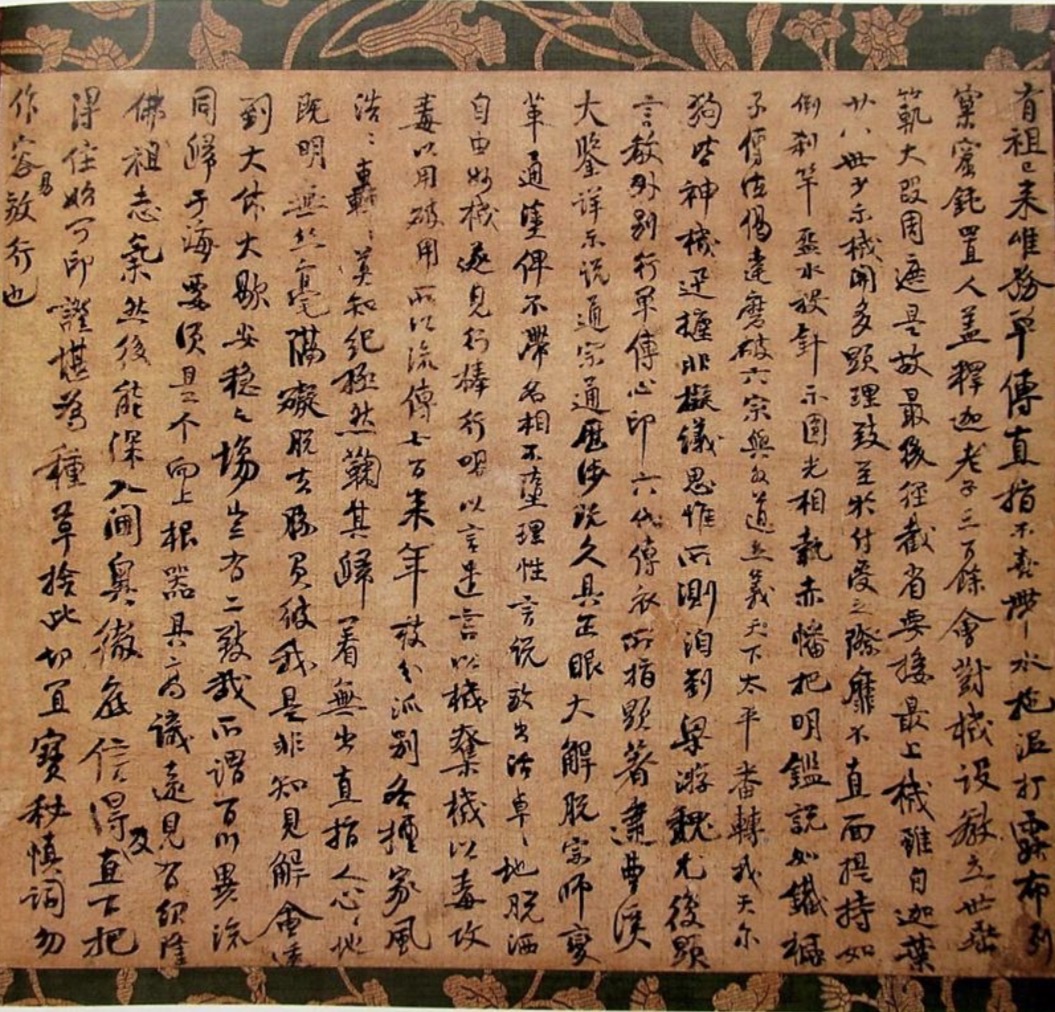 有祖已来唯務單傳直指不喜帶水拖泥打露布列
窠窟鈍置人盖釋迦老子三百餘會對機設教立世垂
範大段周遮是故最後徑截省要接最上機雖自迦葉
廿八世少示機關多顯理致至於付受之際靡不直面提持如
倒刹竿盋水投針示圓光相執赤幡把明鑑説如鐵橛
子傳法偈達磨破六宗與外道立義天下太平番轉我天尔
狗皆神機迅捷非擬議思惟所測洎到梁游魏尤復顯
言教外別行單傳心印六代傳衣所指顯著逮曹溪
大鑒詳示説通宗通歷涉既久具正眼大解脱宗師變
革通塗俾不滯名相不墮理性言説放出活卓〻地脱洒
自由妙機遂見行棒行喝以言遣言以機奪機以毒攻
毒以用破用所以流傳七百来年枝分派別各擅家風
浩〻轟〻莫知紀極然鞠其歸著無出直指人心〻地
既明無絲毫隔礙脱去勝負彼我是非知見解會透
到大休大歇安穩之場豈有二致哉所謂百川異流
同歸于海要須是个向上根器具高識遠見有紹隆
佛祖志氣然後能深入閫奥徹底信得及直下把
得住始可印證堪為種草捨此切宜寶秘慎詞勿
作容易放行也